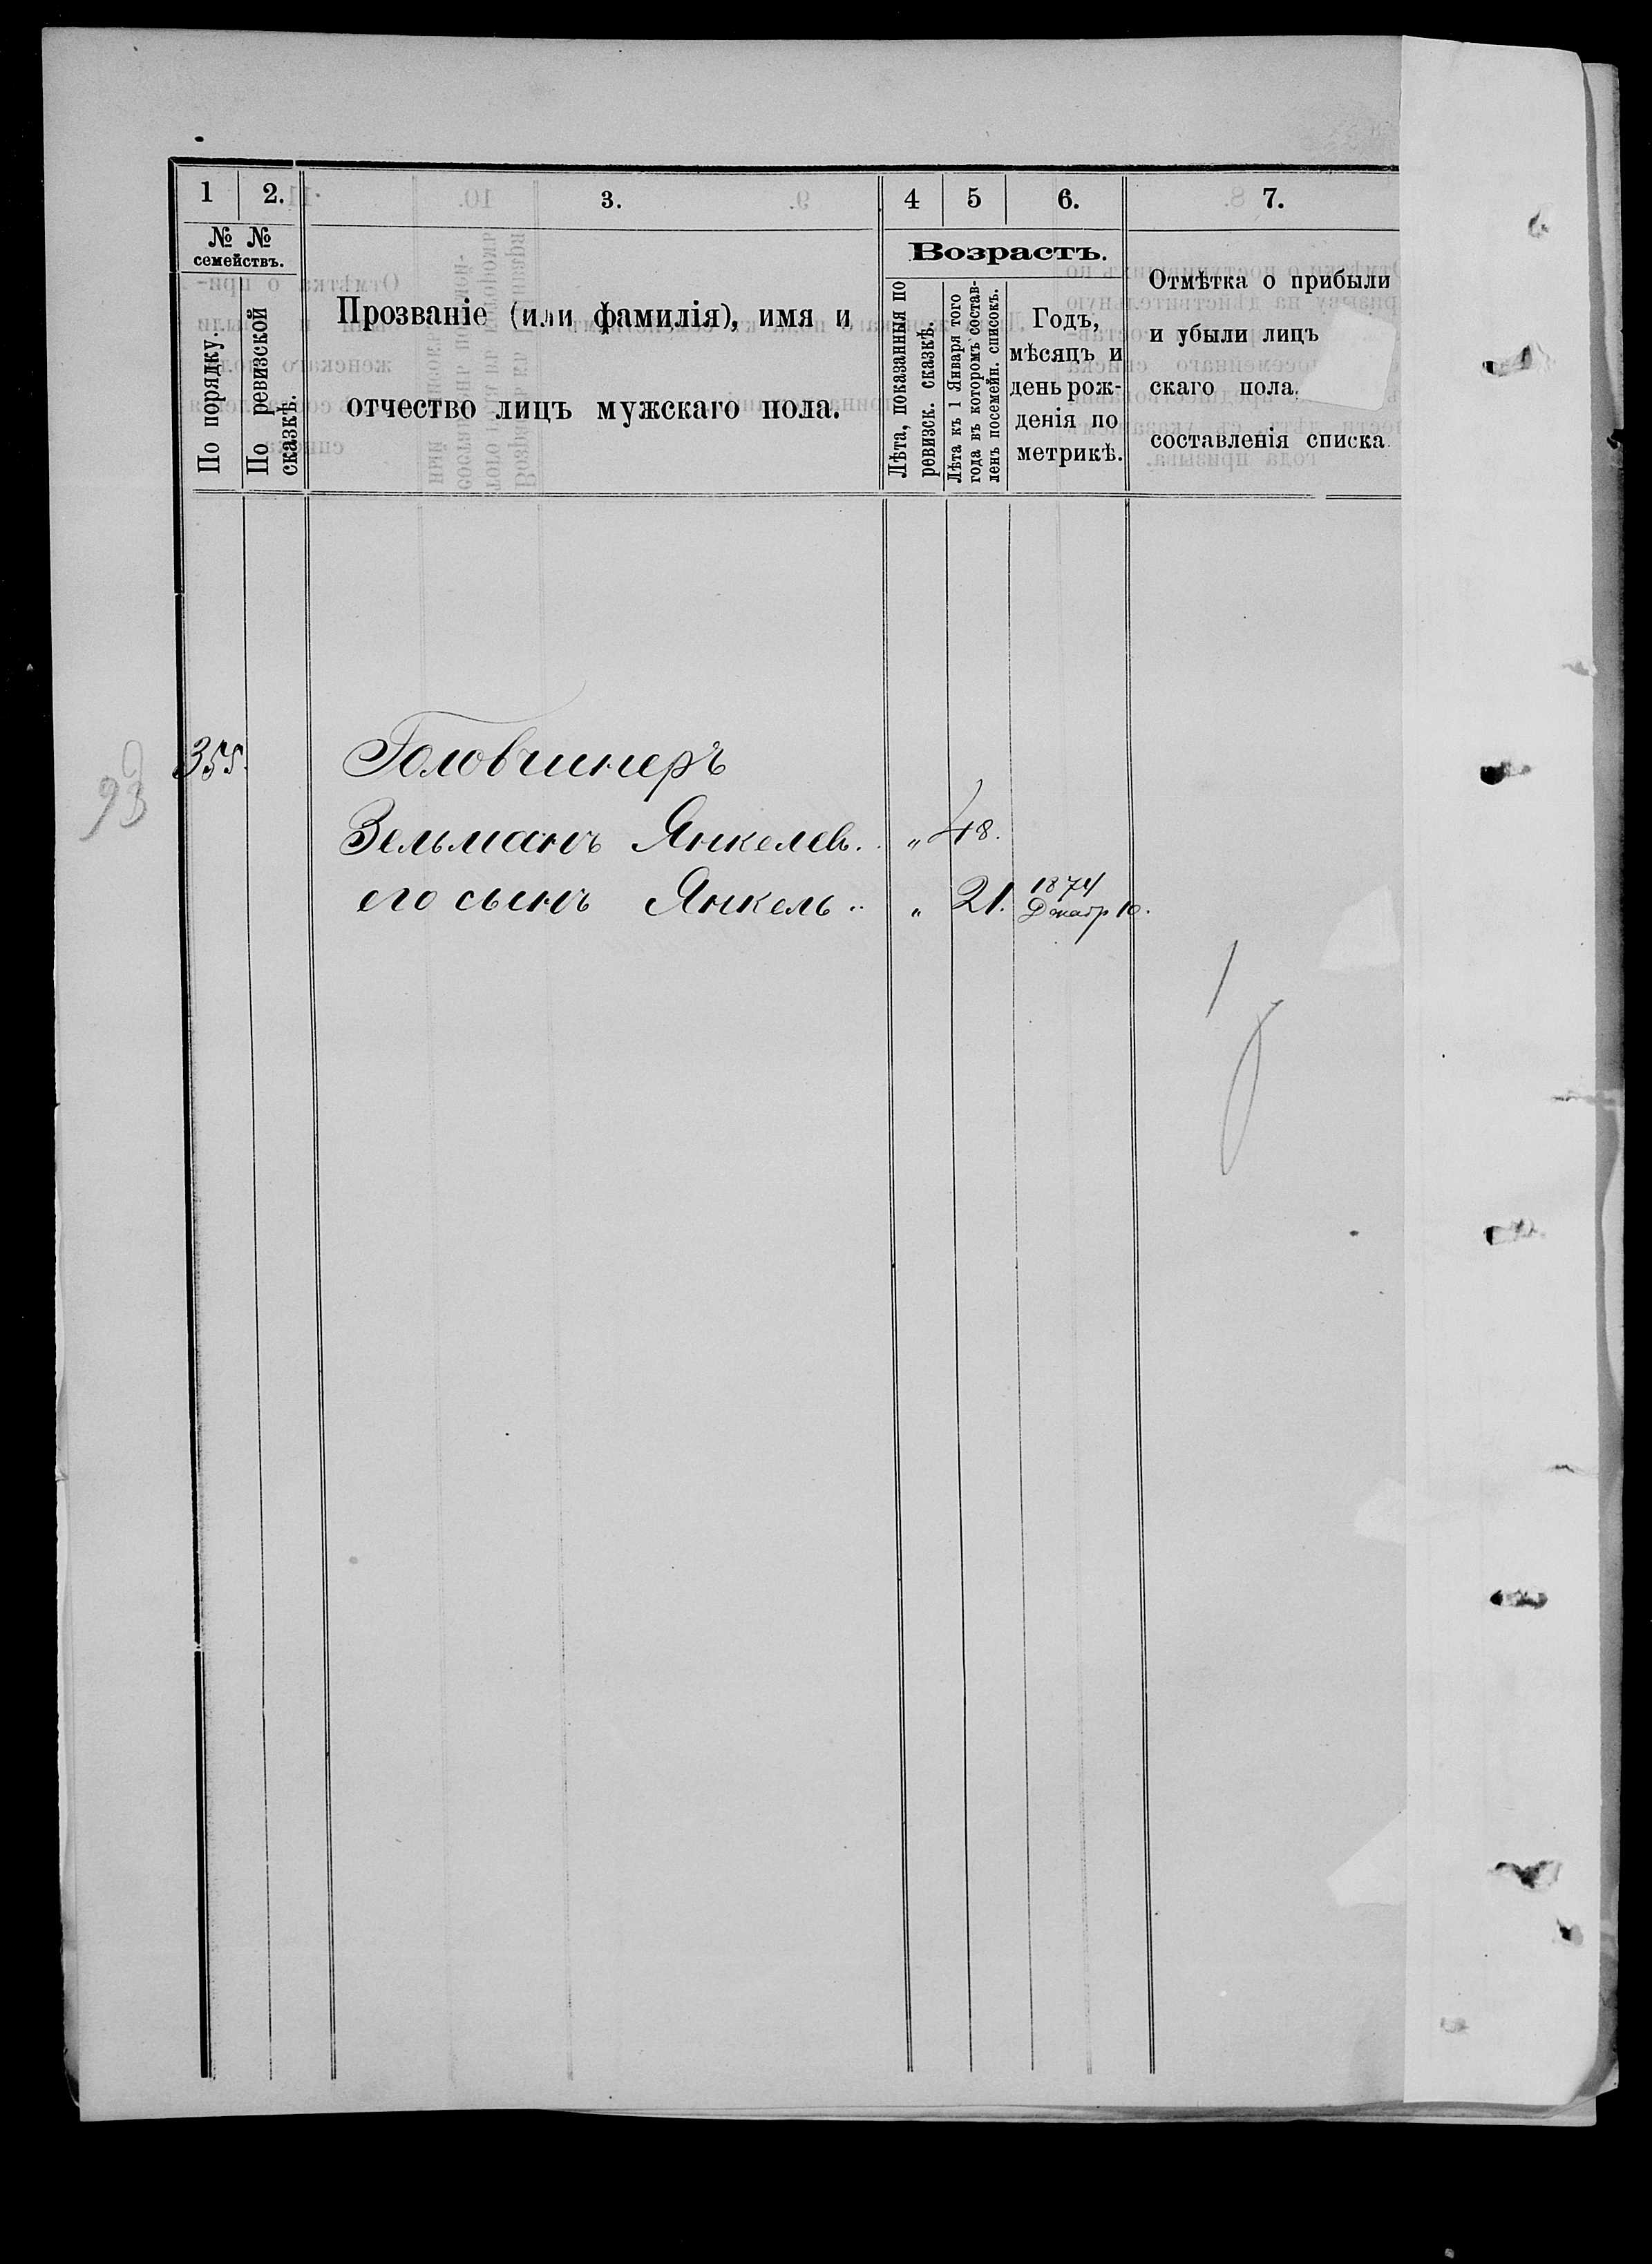 1 2. 3. 4 5 6. 7.
№ № семействъ.
По порядку.
По ревизской сказкѣ.
Прозваніе (или фамилія), имя и
отчество лицъ мужскаго пола.
Возрастъ.
Лѣта, показанныя по
ревизск. сказкѣ.
Лѣта къ 1 Января того
года въ которомъ состав-
ленъ посемейн. списокъ.
Годъ,
мѣсяцъ и
день рож-
денія по
метрикѣ.
Отмѣтка о прибыли
и убыли лицъ
скаго пола.
составленія списка
355. Головчинеръ
93
Зельманъ Янкелев. „ 48.
его сынъ Янкель .. „ 21. 1874
Декабр 10.